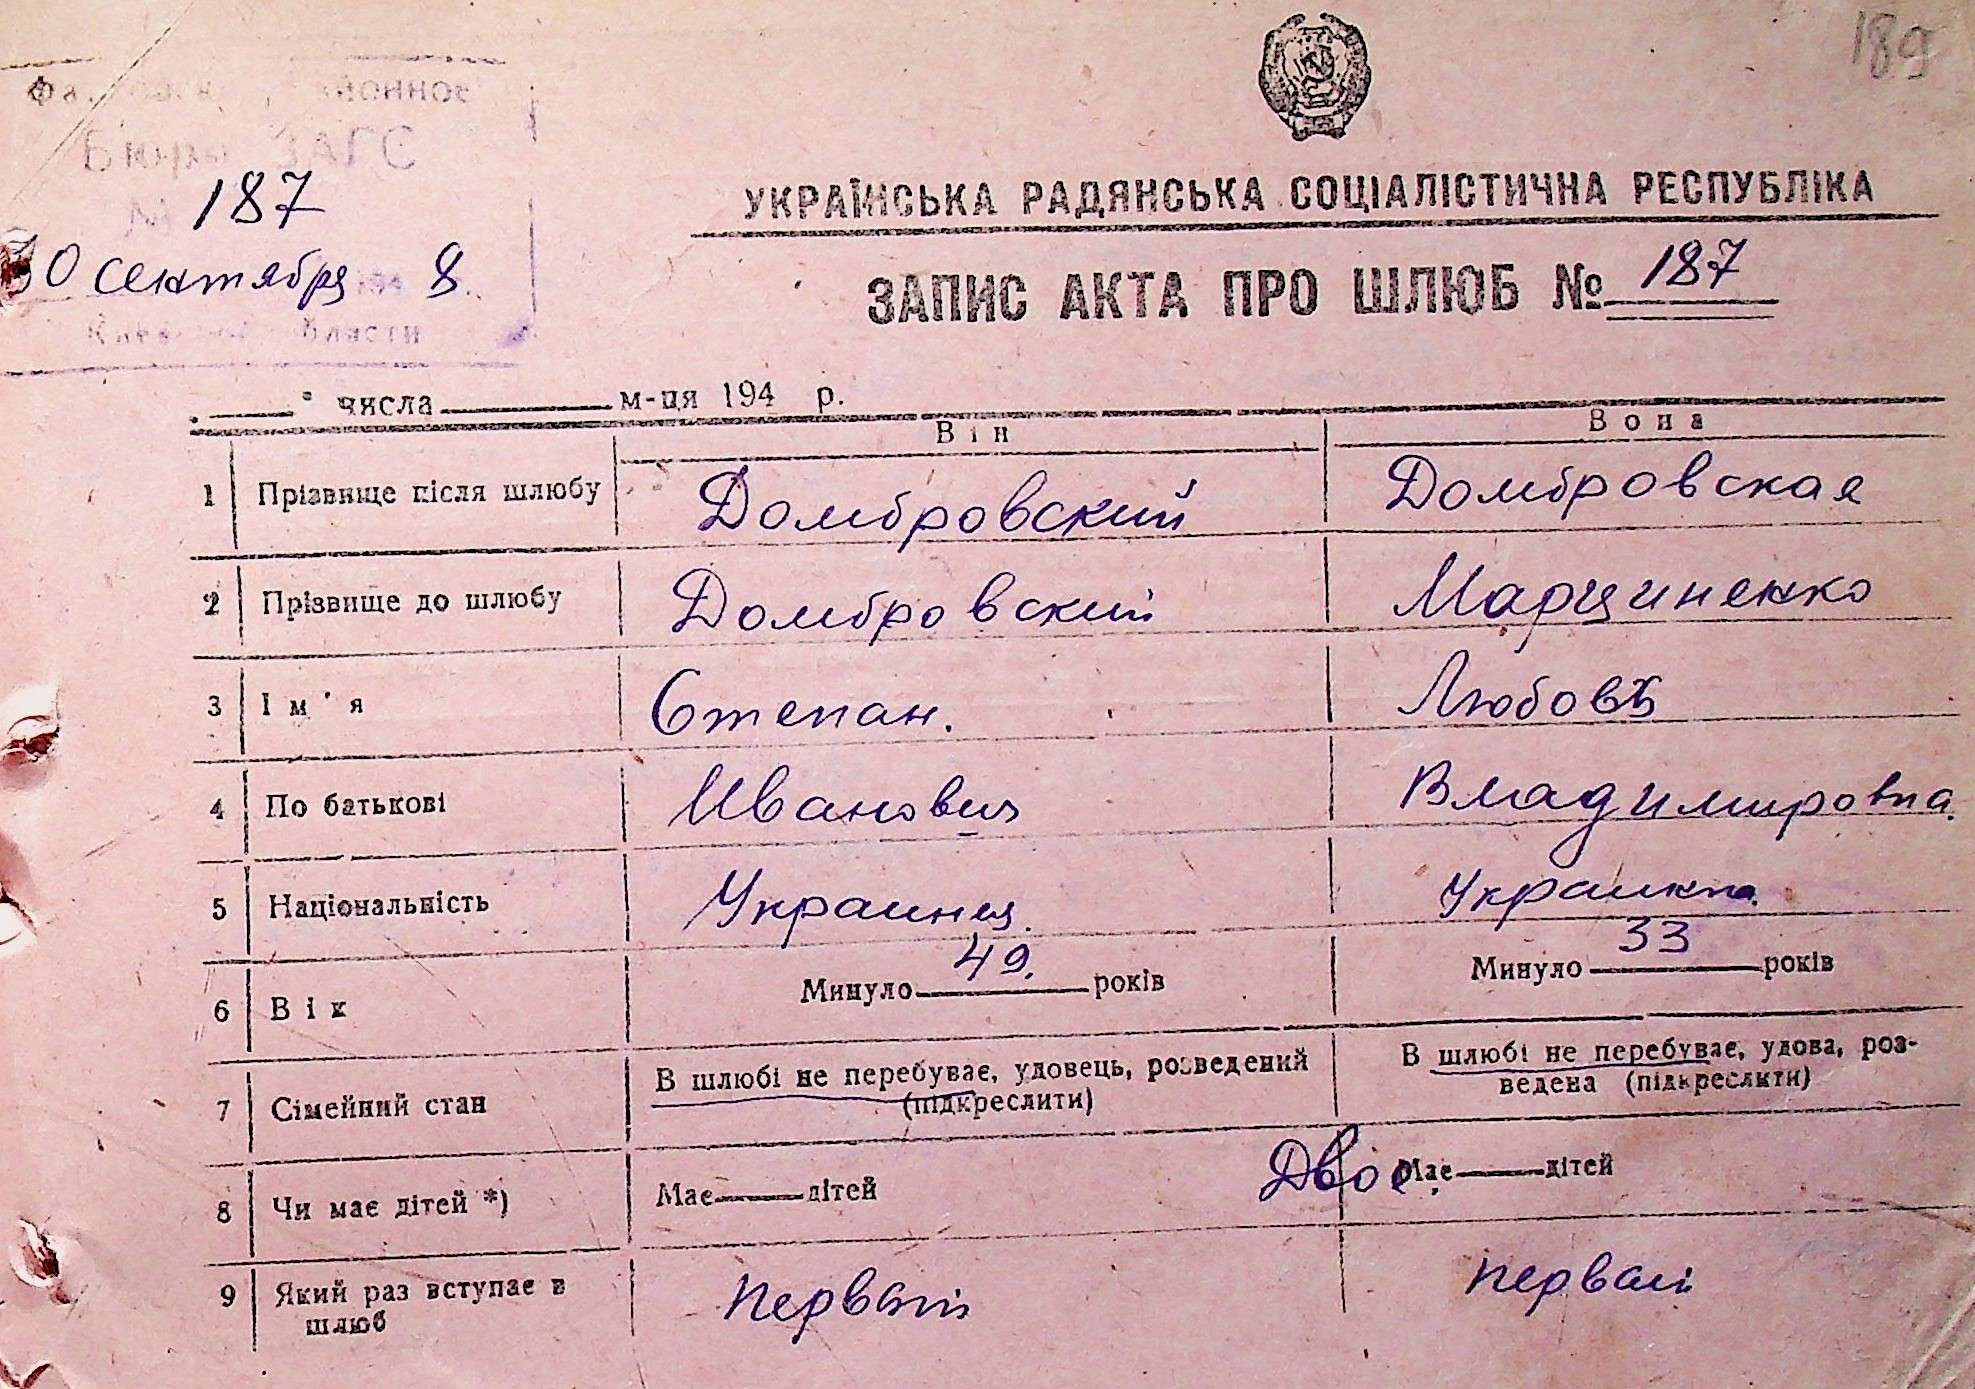 189
Бюро ЗАГС
№ 187
30 сентября 194 8
Киевской области
УКРАЇНСЬКА РАДЯНСЬКА СОЦІАЛІСТИЧНА РЕСПУБЛІКА
ЗАПИС АКТА ПРО ШЛЮБ № 187
числа м-ця 194 р.
Він Вона
1 Прізвище після шлюбу Домбровский Домбровская
2 Прізвище до шлюбу Домбровский Марциненко
3 Ім'я Степан. Любовь
4 По батькові Иванович Владимировна.
5 Національність Украинец. Украинка.
6 Вік Минуло 49. років Минуло 33 років
7 Сімейний стан В шлюбі не перебуває, удовець, розведений В шлюбі не перебуває, удова, роз-
(підкреслити) ведена (підкреслити)
8 Чи має дітей *) Має дітей Двое. Має дітей
9 Який раз вступає в Первый Первый
шлюб